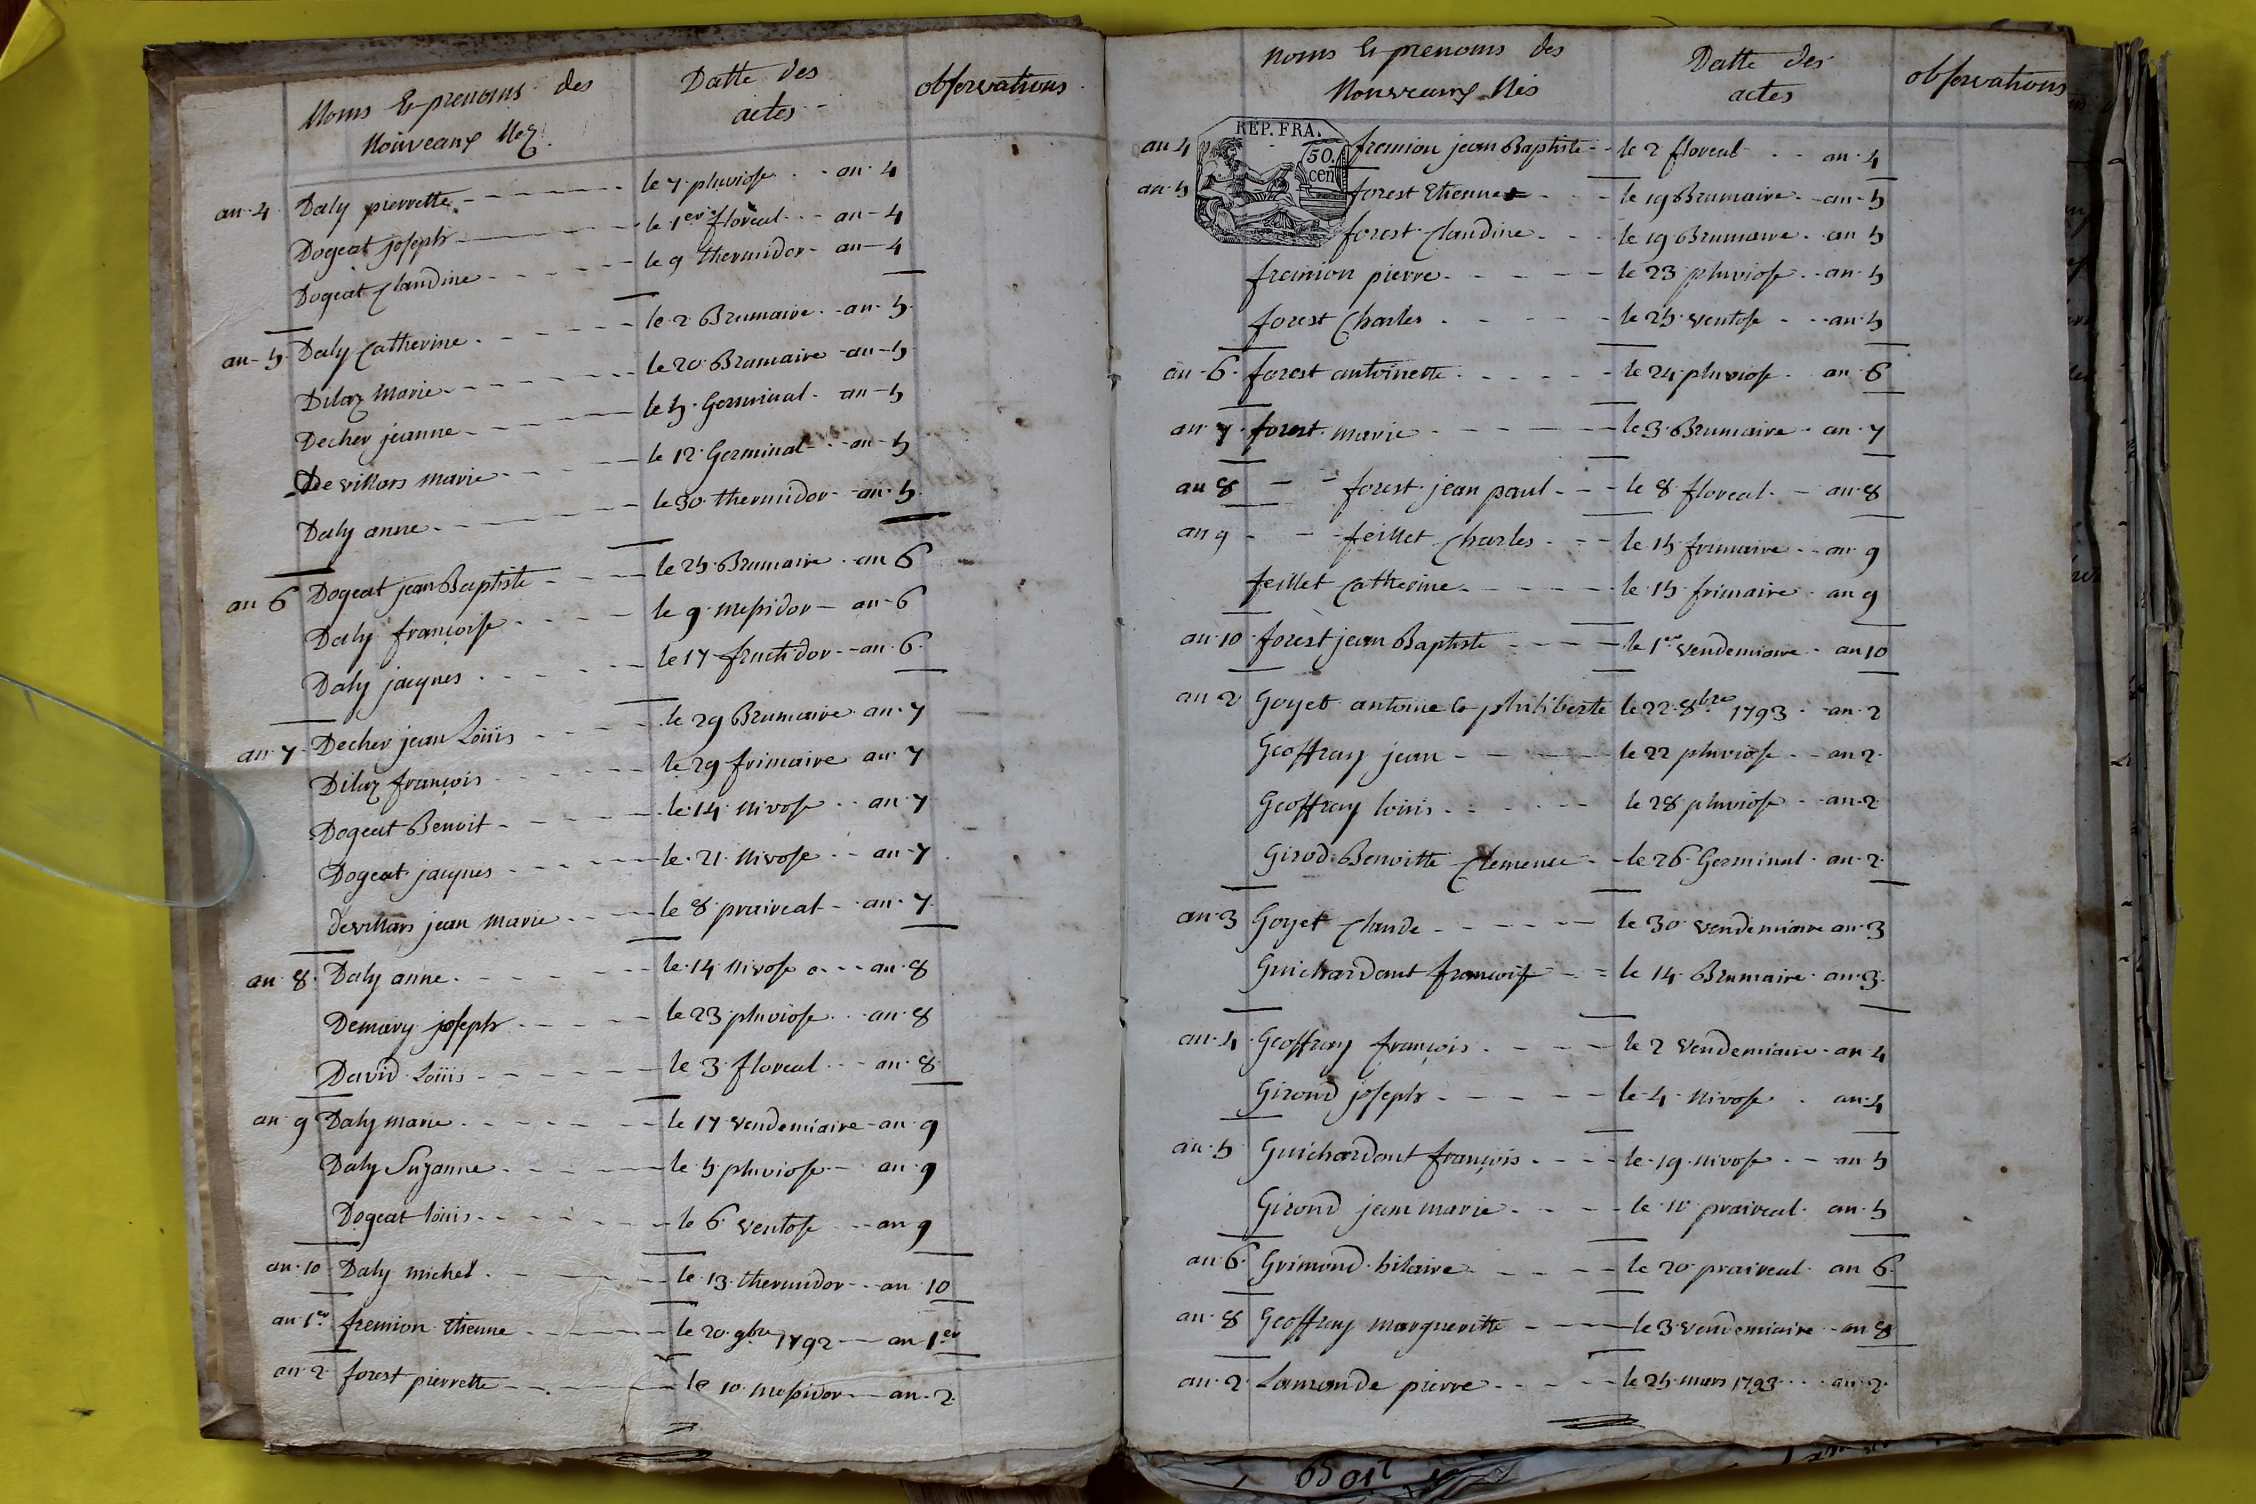 Noms & prenoms des
Nouveaux Nez.
Datte des
actes
observations
an 4 Daly pierrette le 7 pluviose an 4
Dogeat joseph le 1er floreal an 4
Dogeat Claudine le 9 thermidor an 4
an 5 Daly Catherine le 2 Brumaire an 5
Dilaz Marie le 20 Brumaire an 5
Decher jeanne le 5 Germinal an 5
Devillars marie le 12 Germinal an 5
Daly anne le 30 thermidor an 5
an 6 Dogeat jean Baptiste le 25 Brumaire an 6
Daly françoise le 9 messidor an 6
Daly jacques le 17 fructidor an 6
an 7 Decher jean Loüis le 29 Brumaire an 7
Dilaz françois le 29 frimaire an 7
Dogeat Benoit le 14 nivose an 7
Dogeat jacques le 21 Nivose an 7
devillars jean marie le 8 praireal an 7
an 8 Daly anne le 14 nivose an 8
Demary joseph le 23 pluviose an 8
David Loüis le 3 floreal an 8
an 9 Daly marie le 17 vendemiaire an 9
Daly Suzanne le 5 pluviose an 9
Dogeat loüis le 6 ventose an 9
an 10 Daly michel le 13 thermidor an 10
an 1er fremion Etienne le 20 9bre 1792 an 1er
an 2 forest pierrette le 10 messidor an 2
noms & prenoms des
Nouveaux Nés
Datte des
actes
observations
REP. FRA.
50.
cen
an 4 fremion jean Baptiste le 2 floreal an 4
an 5 forest Etienne le 19 Brumaire an 5
forest Claudine le 19 Brumaire an 5
fremion pierre le 23 pluviose an 5
forest Charles le 25 ventose an 5
an 6 forest antoinette le 24 pluviose an 6
an 7 forest marie le 3 Brumaire an 7
an 8 forest jean paul le 8 floreal an 8
an 9 feillet Charles le 15 frimaire an 9
feillet Catherine le 15 frimaire an 9
an 10 forest jean Baptiste le 1er vendemiaire an 10
an 2 Goyet antoine & philiberte le 22 8bre 1793 an 2
Geoffray jean le 22 pluviose an 2
Geoffray loüis le 28 pluviose an 2
Girod Benoitte Clemence le 26 Germinal an 2
an 3 Goyet Claude le 30 vendemiaire an 3
Guichardant françoise le 14 Brumaire an 3
an 4 Geoffray françois le 2 Vendemiaire an 4
Girond joseph le 4 Nivose an 4
an 5 Guichardant françois le 19 nivose an 5
Girond jean marie le 10 praireal an 5
an 6 Grimond hilaire le 20 praireal an 6
an 8 Geoffray margueritte le 3 vendemiaire an 8
an 2 Lamande pierre le 25 mars 1793 an 2